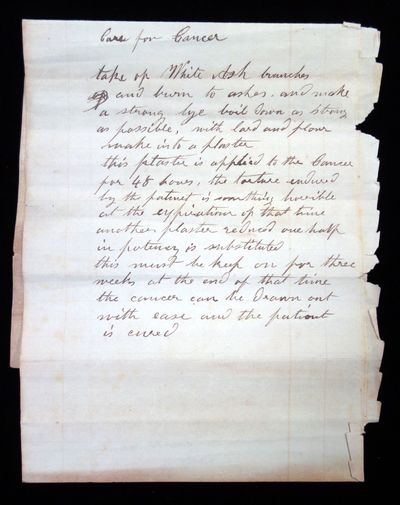 Cure for Cancer
take of White Ash branches
and burn to ashes. and make
a strong lye boil down as strong
as possible, with lard and flour
make into a plaster
this plaster is applied to the Cancer
for 48 houes, the torture endured
by the patinet is something horrible
at the expiration of that time
another plaster reduced one half
in potency is substituted.
this must be keep on for three
weeks at the end of that time
the cancer can be drawn out
with ease and the patient
is cured